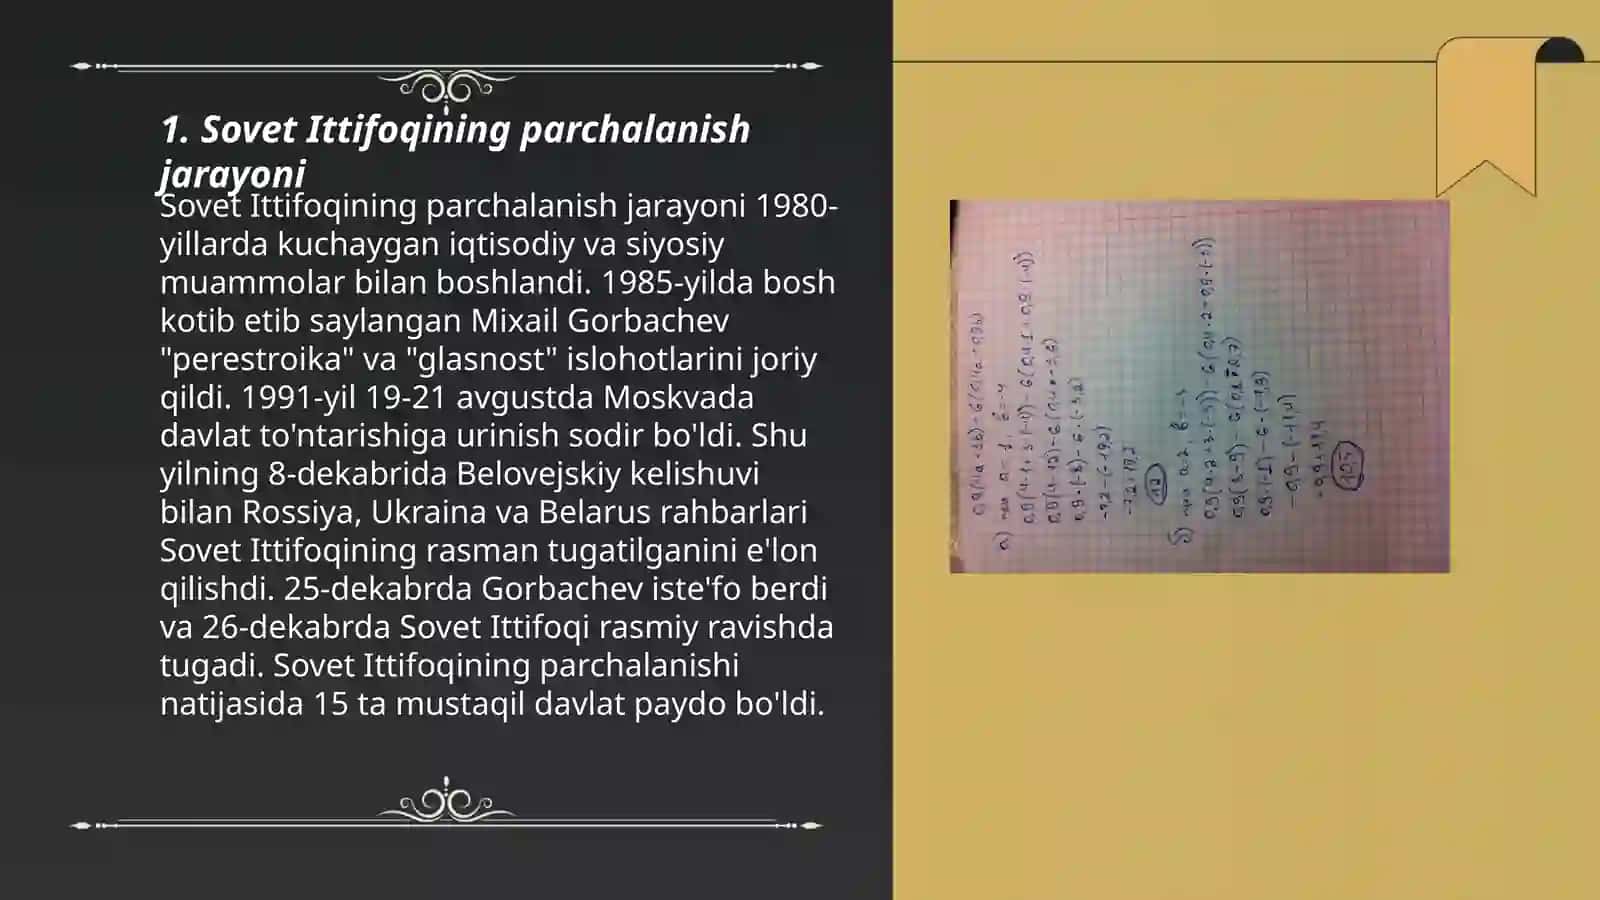 1. Sovet Ittifoqining parchalanish
jarayoni
Sovet Ittifoqining parchalanish jarayoni 1980-
yillarda kuchaygan iqtisodiy va siyosiy
muammolar bilan boshlandi. 1985-yilda bosh
kotib etib saylangan Mixail Gorbachev
"perestroika" va "glasnost" islohotlarini joriy
qildi. 1991-yil 19-21 avgustda Moskvada
davlat to'ntarishiga urinish sodir bo'ldi. Shu
yilning 8-dekabrida Belovejskiy kelishuvi
bilan Rossiya, Ukraina va Belarus rahbarlari
Sovet Ittifoqining rasman tugatilganini e'lon
qilishdi. 25-dekabrda Gorbachev iste'fo berdi
va 26-dekabrda Sovet Ittifoqi rasmiy ravishda
tugadi. Sovet Ittifoqining parchalanishi
natijasida 15 ta mustaqil davlat paydo bo'ldi.
а) при a=1, b=-4
-7,2-(-19,2)
-7,2+19,2
12
б) при a=2, b=-3
-0,9-(-11,4)
-0,9+11,4
10,5